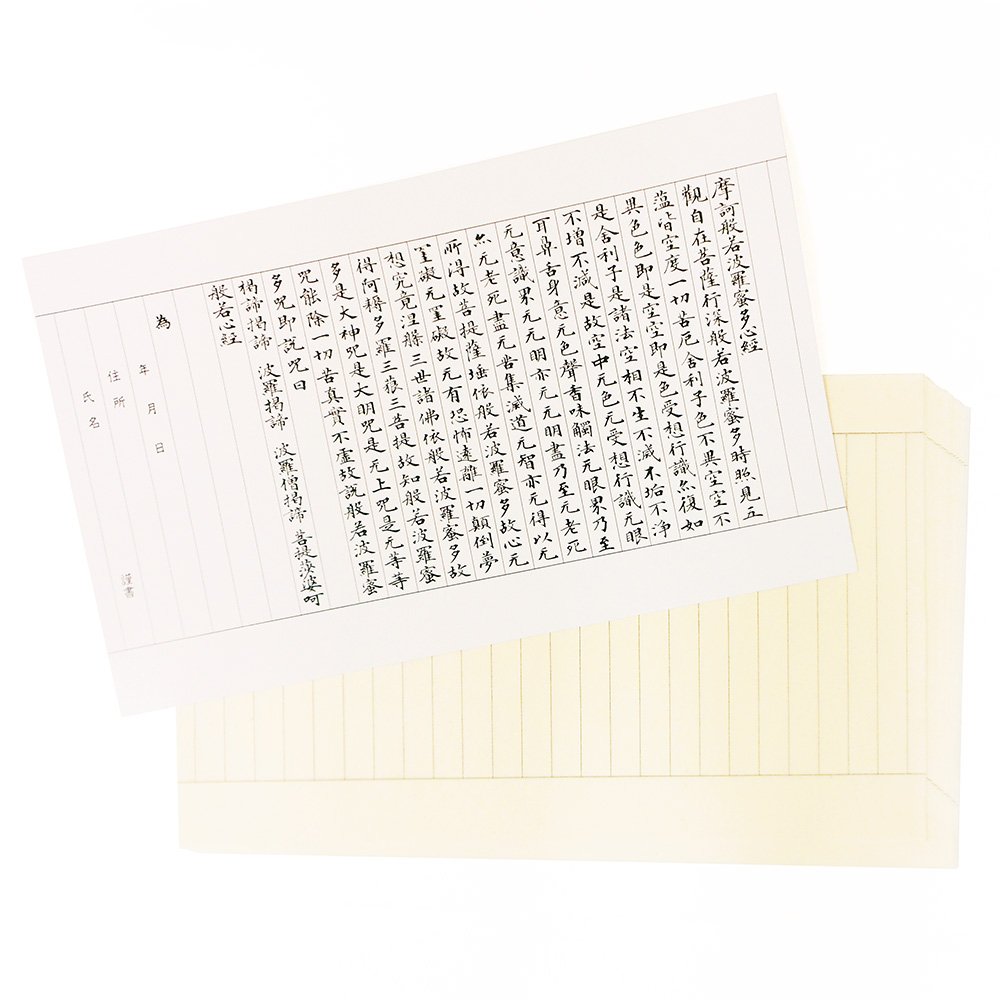 摩訶般若波羅蜜多心經
觀自在菩薩行深般若波羅蜜多時照見五
薀皆空度一切苦厄舍利子色不異空空不
異色色即是空空即是色受想行識亦復如
是舍利子是諸法空相不生不滅不垢不淨
不增不減是故空中元色元受想行識元眼
耳鼻舌身意元色聲香味觸法元眼界乃至
元意識界元元明亦元元明盡乃至元老死
亦元老死盡元苦集滅道元智亦元得以元
所得故菩提薩埵依般若波羅蜜多故心元
罣礙元罣礙故元有恐怖遠離一切顛倒夢
想究竟涅槃三世諸佛依般若波羅蜜多故
得阿耨多羅三藐三菩提故知般若波羅蜜
多是大神呪是大明呪是元上呪是元等等
呪能除一切苦真實不虛故說般若波羅蜜
多呪即說呪曰
揭諦揭諦 波羅揭諦 波羅僧揭諦 菩提莎婆呵
般若心經
為
年 月 日
住所
氏名 謹書